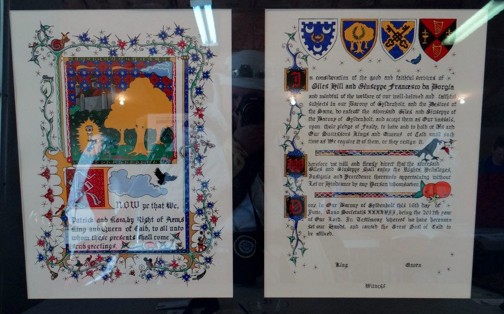 Know ye that We,
Patrick and by Right of Arms
King and Queen of Caid, to all unto
whom these presents shall come
send greetings.
In consideration of the good and faithful services of
Giles Hill and Giuseppe Francesco da Borgia
and mindful of the welfare of our well-beloved and faithful
subjects in our Barony of Gyldenholt, and the desires of
the Same, to extend the aforesaid Giles and Giuseppe of
the Barony of Gyldenholt, and accept them as Our vassals,
upon their pledge of Fealty, to have and to hold of Us and
Our Successors Kings and Queens of Caid until such
time as We require it of them, or they resign it.
Therefore we will and firmly direct that the aforesaid
Giles and Giuseppe shall enjoy the Rights, Privileges,
and thereunto appertaining without
Let or hindrance by any Person whomsoever.
in Our Barony of Gyldenholt this 16th day of
Anno Societatis being the
of Our Lord. In Testimony whereof we have hereunto
set our Hands, and caused the Great Seal of Caid to
be affixed.
King Queen
Witness